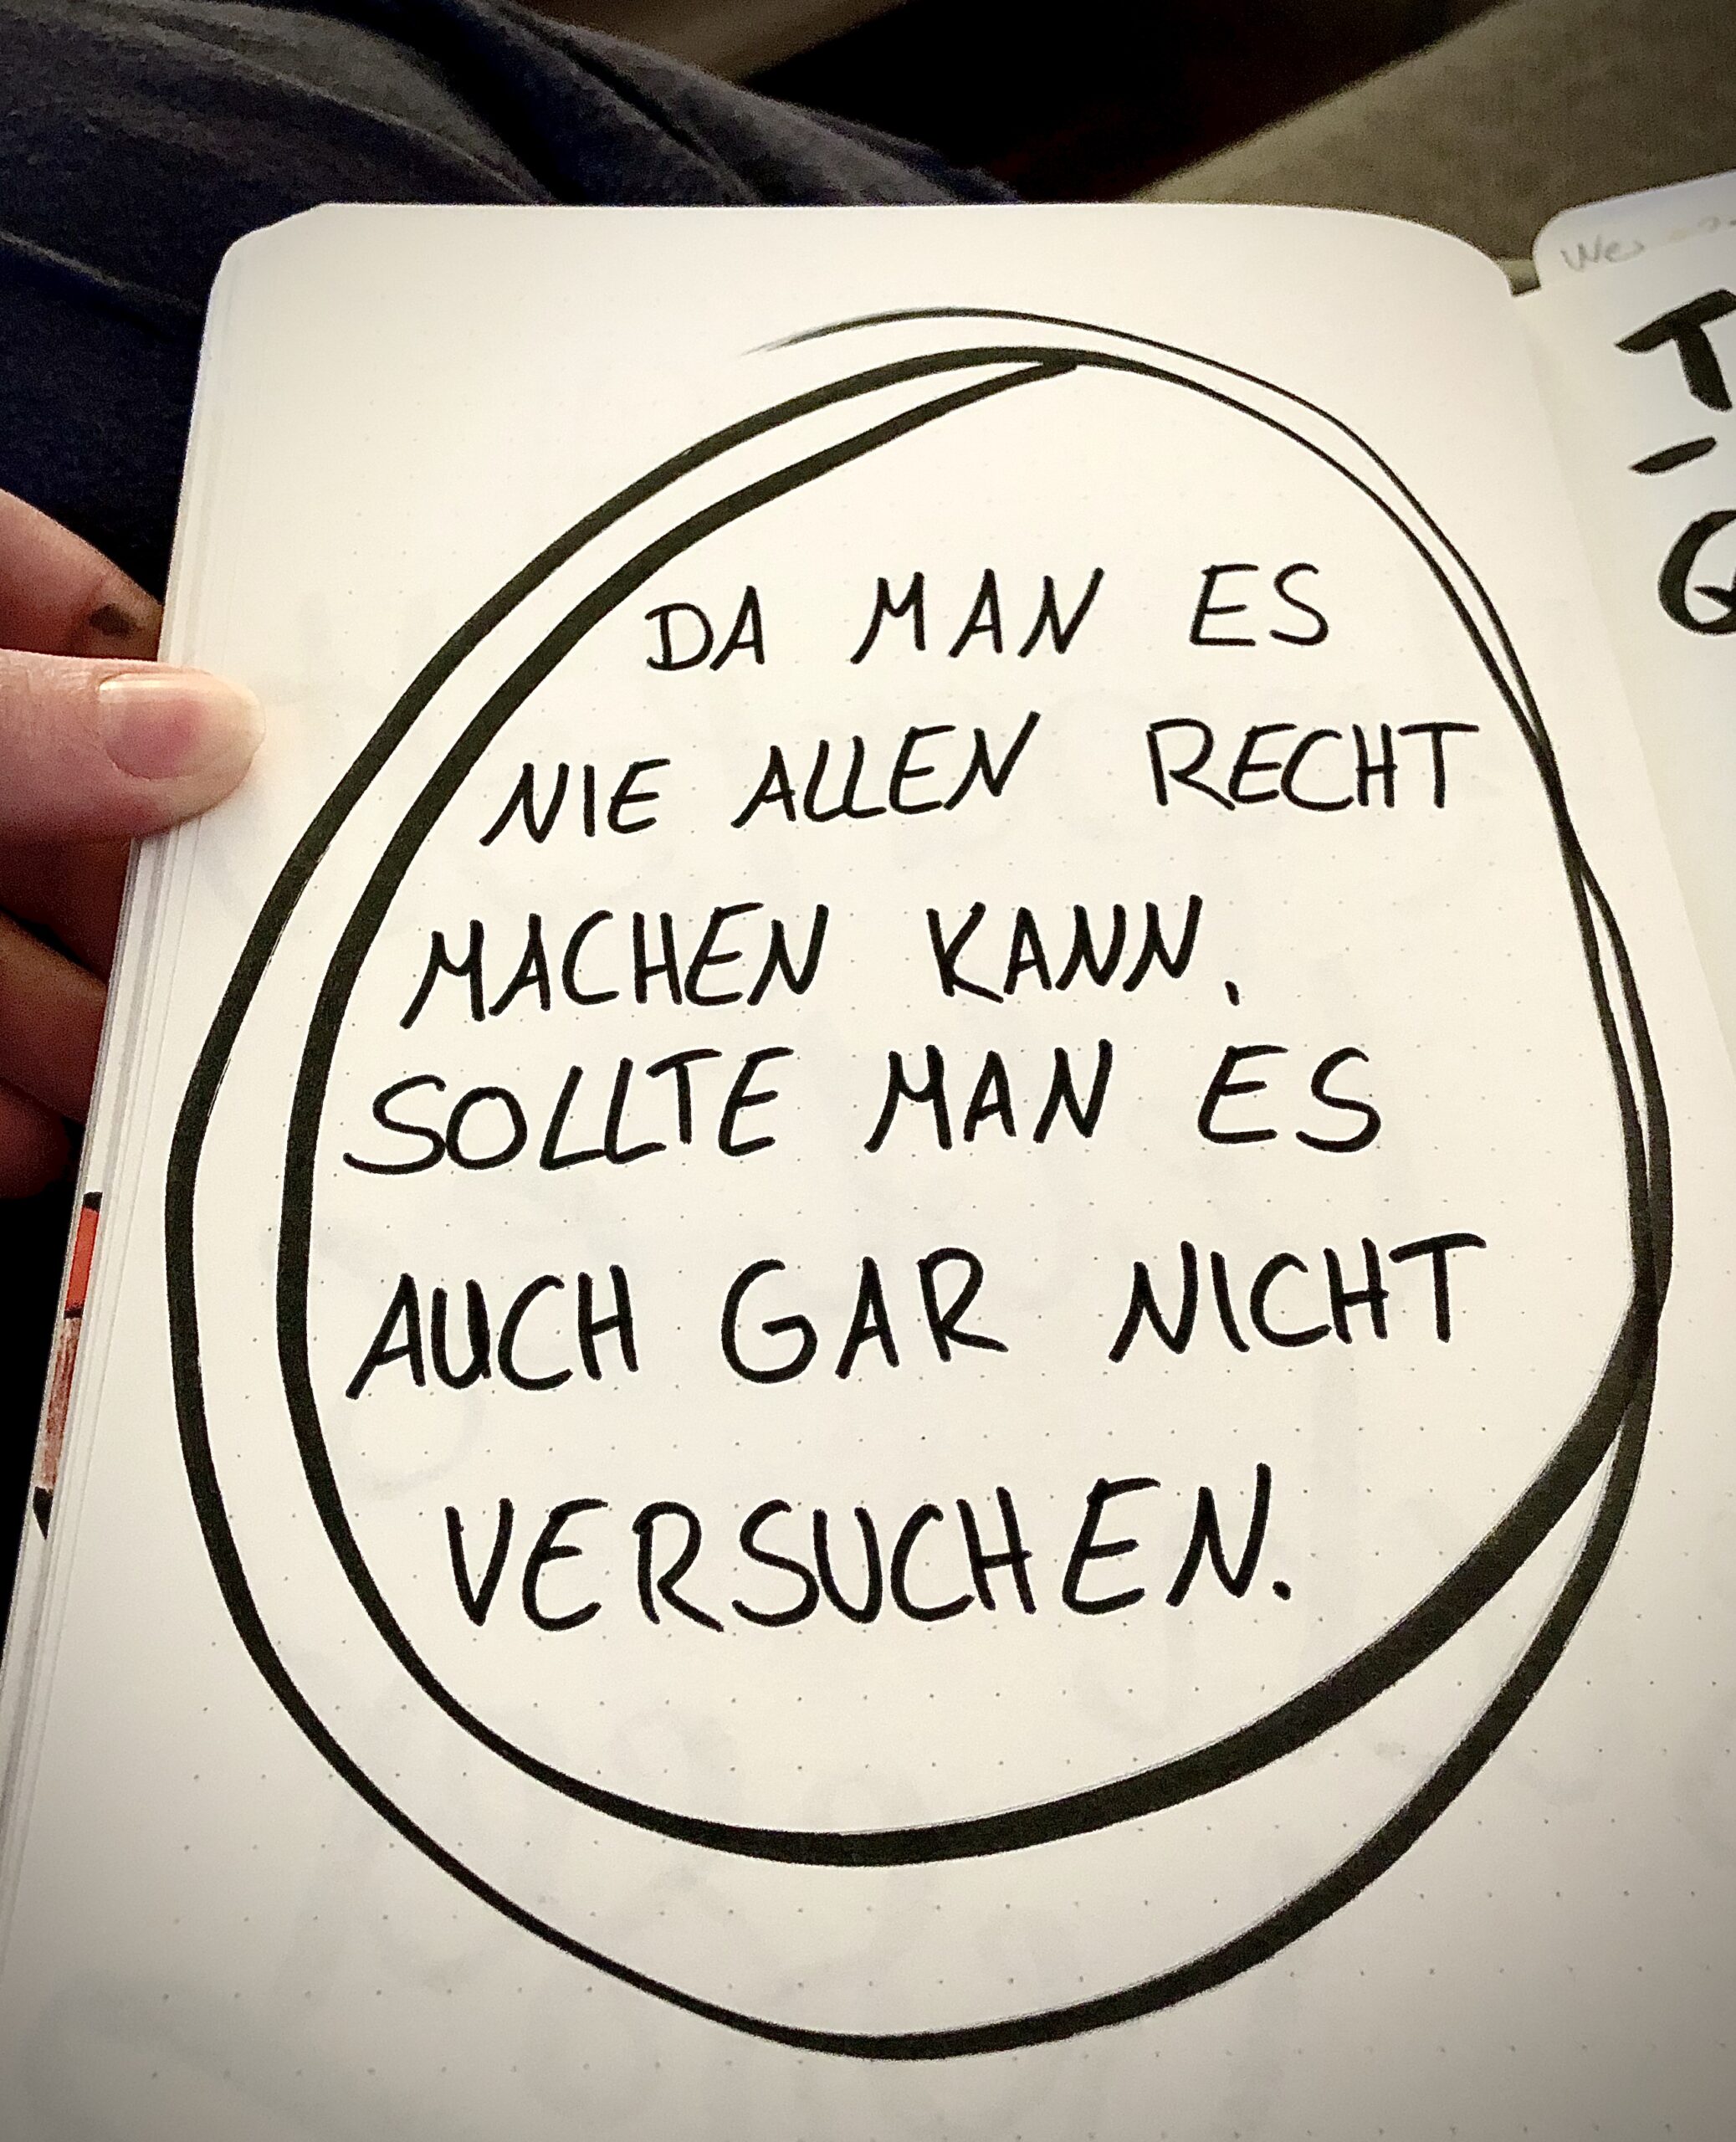 DA MAN ES
NIE ALLEN RECHT
MACHEN KANN,
SOLLTE MAN ES
AUCH GAR NICHT
VERSUCHEN.